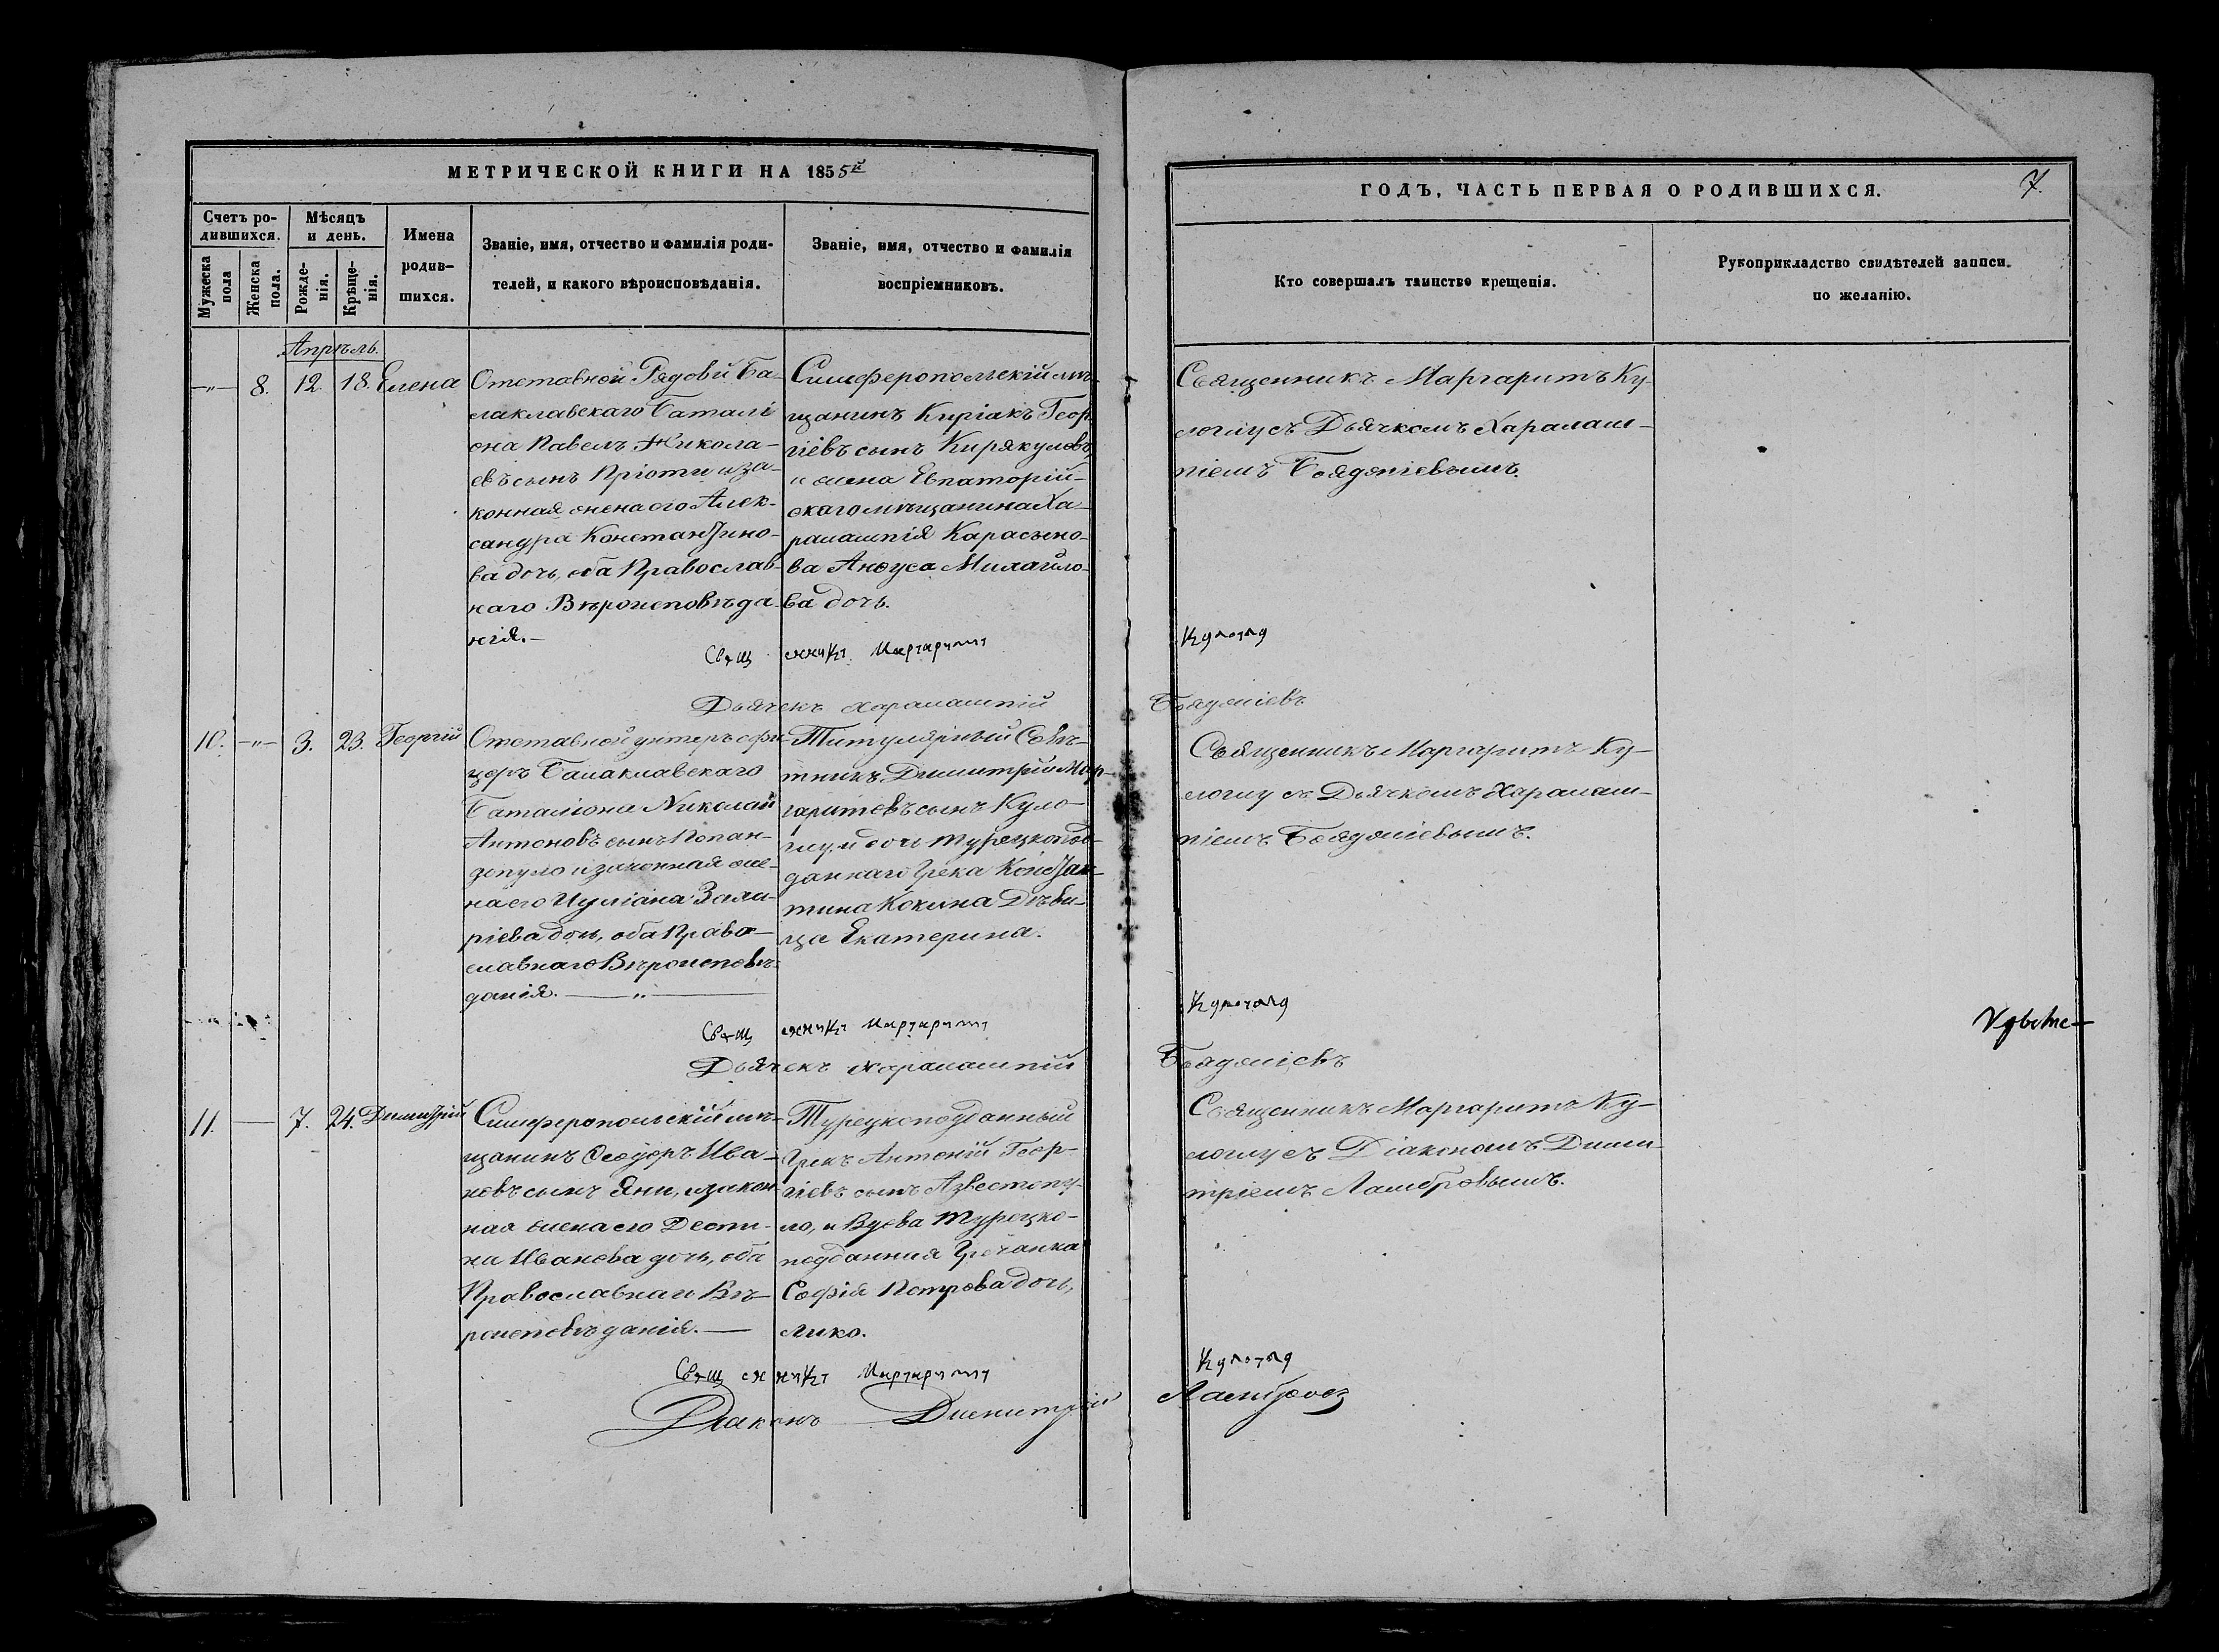 МЕТРИЧЕСКОЙ КНИГИ НА 1855й
ГОДЪ, ЧАСТЬ ПЕРВАЯ О РОДИВШИХСЯ.
7.
Счетъ ро-
дившихся.
Мужеска
пола
Женска
пола.
Мѣсяцъ
и день.
Рожде-
нія.
Крѣще-
нія.
Имена
родив-
шихся.
Званіе, имя, отчество и фамилія роди-
телей, и какого вѣроисповѣданія.
Званіе, имя, отчество и фамилія
воспріемниковъ.
Кто совершалъ таинство крещенія.
Рукоприкладство свидѣтелей записи.
по желанію.
Апрѣль.
-"- 8. 12. 18. Елена
Отставной Рядовй Ба-
лаклавскаго Баталі
она Павелъ Никола-
евъ сынъ Пріоти и за-
конная жена его Алек-
сандра Константино-
ва дочь, оба Православ-
наго Вѣроисповѣда
нія.-
Симферопольскій мѣ-
щанинъ Киріакъ Геор
гіевъ сынъ Кирякуловъ,
и жена Евпаторій-
скаго мѣщанина Ха-
ралампія Карасено-
ва Анѳуса Михайло-
ва дочь.
Священникъ Маргаритъ Ку-
логлу съ Дьячкомъ Харалам-
піемъ Бояджіевымъ.
Священникъ Маргаритъ Кулоглу
Дьячекъ Харалампій Бояджіевъ
10. -"- 3. 23. Георгій
Отставной унтеръ офи-
церъ Балаклавскаго
Баталіона Николай
Антоновъ сынъ Попан-
допуло и законная же-
на его Иуліана Заха-
ріева дочь, оба Право-
славнаго Вѣроисповѣ-
данія. — " —
Титулярный Совѣ-
тникъ Димитрій Мар-
гаритовъ сынъ Куло-
глу, и дочь турецкопод-
даннаго Грека Констан-
тина Кокина Дѣви-
ца Екатерина.
Священникъ Маргаритъ Ку-
логлу съ Дьячкомъ Харалам-
піемъ Бояджіевымъ.
Священникъ Маргаритъ Кулоглу
Дьячекъ Харалампій Бояджіевъ
11. — 7. 24. Димитрій
Симферопольскій мѣ-
щанинъ Ѳеодоръ Ива-
новъ сынъ Яни, и закон-
ная жена его Деспи-
на Иванова дочь, оба
Православнаго Вѣ-
роисповѣданія. —
Турецкоподданный
Грекъ Антоній Геор-
гіевъ сынъ Азвестопу-
ло, и Вдова Турецко-
подданная Гречанка
Софія Петрова дочь,
Лико.
Священникъ Маргаритъ Ку-
логлу съ Діакономъ Дими-
тріемъ Ламбровымъ.
Священникъ Маргаритъ Кулоглу
Діаконъ Димитрій Ламбровъ